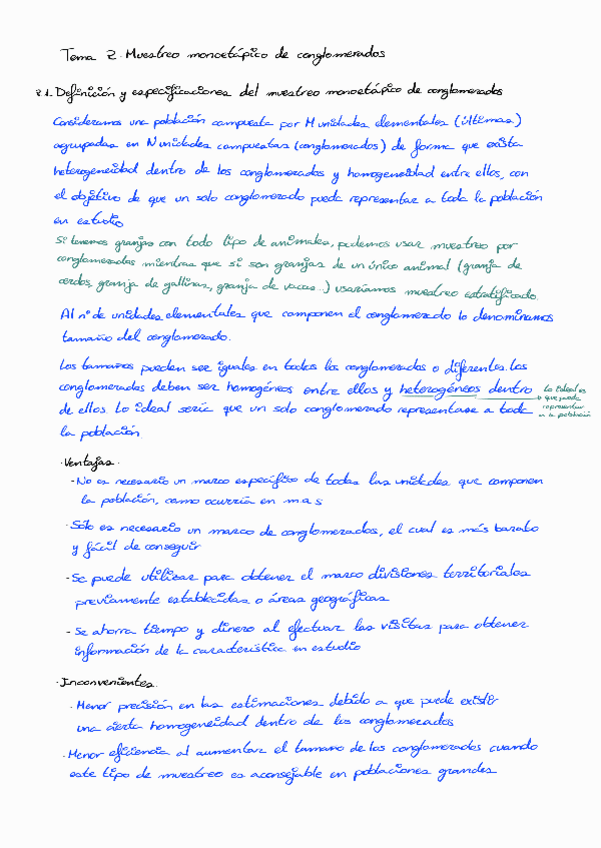 Tema 2. Muestreo monoetápico de conglomerados
2.1. Definición y especificaciones del muestreo monoetápico de conglomerados
Consideramos una población compuesta por M unidades elementales (últimas)
agrupadas en N unidades compuestas (conglomerados) de forma que exista
heterogeneidad dentro de los conglomerados y homogeneidad entre ellos, con
el objetivo de que un solo conglomerado pueda representar a toda la población
en estudio
Si tenemos granjas con todo tipo de animales, podemos usar muestreo por
conglomerados mientras que si son granjas de un único animal (granja de
cerdos, granja de gallinas, granja de vacas..) usaríamos muestreo estratificado.
Al nº de unidades elementales que componen el conglomerado lo denominamos
tamaño del conglomerado.
Los tamaños pueden ser iguales en todos los conglomerados o diferentes. Los
conglomerados deben ser homogéneos entre ellos y heterogéneos dentro
de ellos. Lo ideal sería que un solo conglomerado representase a toda
la población.
Lo ideal es
que pueda
representar
a la población
· Ventajas.
- No es necesario un marco específico de todas las unidades que componen
la población, como ocurría en m.a.s
· Sólo es necesario un marco de conglomerados, el cual es más barato
y fácil de conseguir
- Se puede utilizar para obtener el marco divisiones territoriales
previamente establecidas o áreas geográficas
- Se ahorra tiempo y dinero al efectuar las visitas para obtener
información de la característica en estudio
· Inconvenientes.
· Menor precisión en las estimaciones debido a que puede existir
una cierta homogeneidad dentro de los conglomerados
· Menor eficiencia al aumentar el tamaño de los conglomerados cuando
este tipo de muestreo es aconsejable en poblaciones grandes